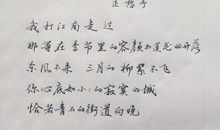 愁予
我打江南走过
那等在季节里的容颜如莲花的开落
东风不来 三月的柳絮不飞
你心底如小小的寂寞的城
恰若青石的街道向晚